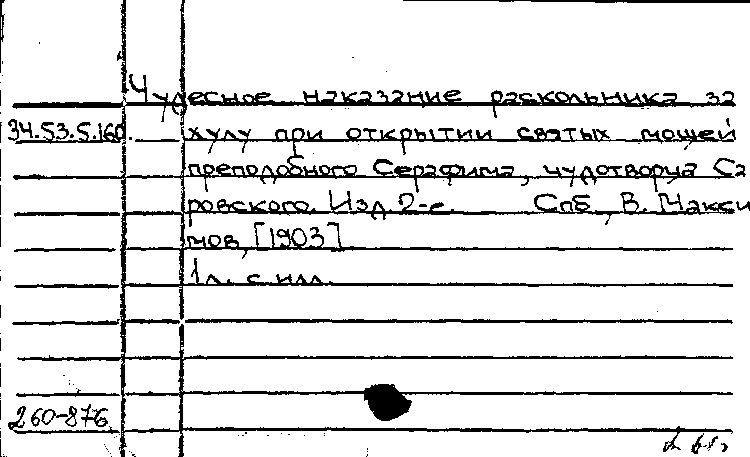 Чудесное наказание раскольника за
34.53.5.160. хулу при открытии святых мощей
преподобного Серафима, чудотворца Са
ровского. Изд. 2-е. Спб., В. Макси
мов, [1903].
1 л. с илл.
260-876